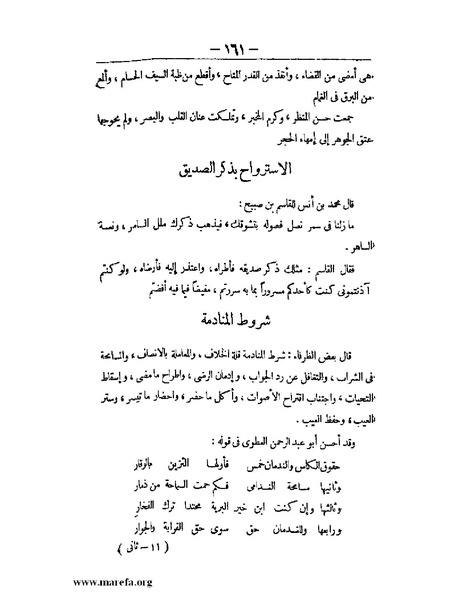 — ١٦١ —
هى أمضى من القضاء ، وأنفذ من القدر المتاح ، وأقطع من ظبة السيف الحسام ، وألمع
من البرق فى الغمام
جمعت حسن المنظر ، وكرم المخبر ، وتملكت عنان القلب والبصر ، ولم يحوجها
عتق الجوهر إلى إمهاء الحجر
الاسترواح بذكر الصديق
قال محمد بن أنس للقاسم بن صبيح :
ما زلنا فى سمر نصل فصوله بتشوقك ، فيذهب ذكرك ملل السامر ، ونعسة
الساهر .
فقال القاسم : مثلك ذكر صديقه فأطراه ، واعتذر إليه فأرضاه ، ولو كنتم
آذنتمونى كنت كأحدكم مسروراً بما به سررتم ، مفيضاً فيما فيه أفضتم
شروط المنادمة
قال بعض الظرفاء : شرط المنادمة قلة الخلاف ، والمعاملة بالانصاف ، والمسامحة
فى الشراب ، والتغافل عن رد الجواب ، وإدمان الرضى ، واطراح ما مضى ، وإسقاط
التحيات ، واجتناب اقتراح الأصوات ، وأكل ما حضر ، واحضار ما تيسر ، وستر
العيب ، وحفظ الغيب .
وقد أحسن أبو عبد الرحمن العطوى فى قوله :
حقوق الكاس والندمان خمس فأولها التزين بالوقار
وثانيها مسامحة الندامى فكم حمت السماحة من ذمار
وثالثها وإن كنت ابن خير البرية محتداً ترك الفخار
ورابعها وللندمان حق سوى حق القرابة والجوار
( ١١ — ثانى )
www.marefa.org